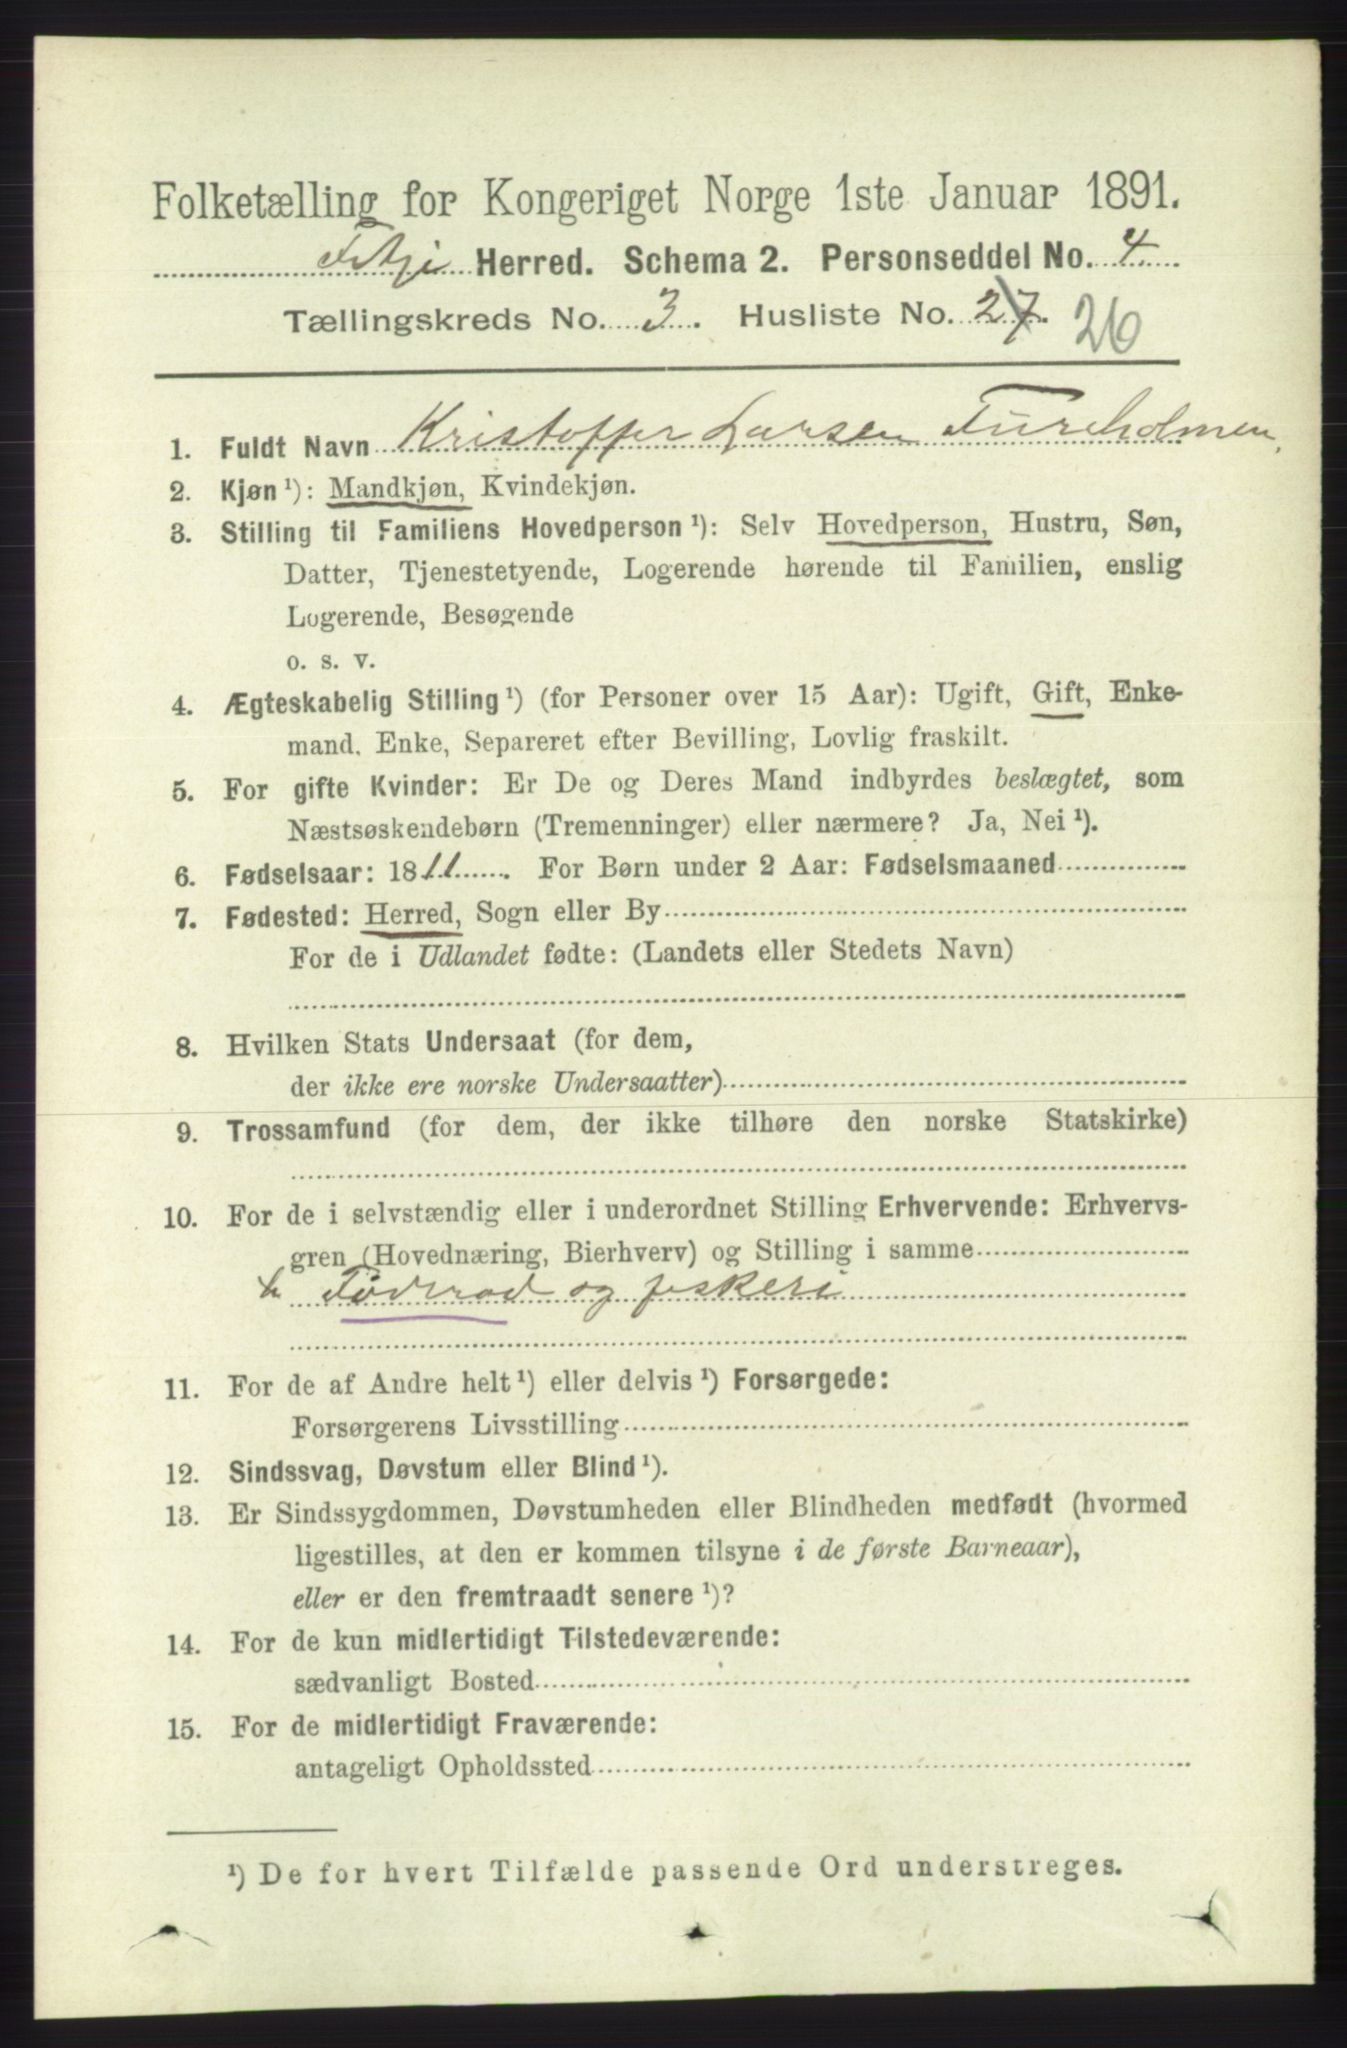 Folketælling for Kongeriget Norge 1ste Januar 1891.
Fitje Herred. Schema 2. Personseddel No. 4
Tællingskreds No. 3. Husliste No. 27. 26
1. Fuldt Navn Kristoffer Larsen Fureholmen,
2. Kjøn¹): Mandkjøn, Kvindekjøn.
3. Stilling til Familiens Hovedperson¹): Selv Hovedperson, Hustru, Søn,
Datter, Tjenestetyende, Logerende hørende til Familien, enslig
Logerende, Besøgende
o. s. v.
4. Ægteskabelig Stilling¹) (for Personer over 15 Aar): Ugift, Gift, Enke-
mand, Enke, Separeret efter Bevilling, Lovlig fraskilt.
5. For gifte Kvinder: Er De og Deres Mand indbyrdes beslægtet, som
Næstsøskendebørn (Tremenninger) eller nærmere? Ja, Nei¹).
6. Fødselsaar: 1811. For Børn under 2 Aar: Fødselsmaaned
7. Fødested: Herred, Sogn eller By
For de i Udlandet fødte: (Landets eller Stedets Navn)
8. Hvilken Stats Undersaat (for dem,
der ikke ere norske Undersaatter)
9. Trossamfund (for dem, der ikke tilhøre den norske Statskirke)
10. For de i selvstændig eller i underordnet Stilling Erhvervende: Erhvervs-
gren (Hovednæring, Bierhverv) og Stilling i samme
Föderaad og fiskeri
11. For de af Andre helt¹) eller delvis¹) Forsørgede:
Forsørgerens Livsstilling
12. Sindssvag, Døvstum eller Blind¹).
13. Er Sindssygdommen, Døvstumheden eller Blindheden medfødt (hvormed
ligestilles, at den er kommen tilsyne i de første Barneaar),
eller er den fremtraadt senere¹)?
14. For de kun midlertidigt Tilstedeværende:
sædvanligt Bosted
15. For de midlertidigt Fraværende:
antageligt Opholdssted
¹) De for hvert Tilfælde passende Ord understreges.